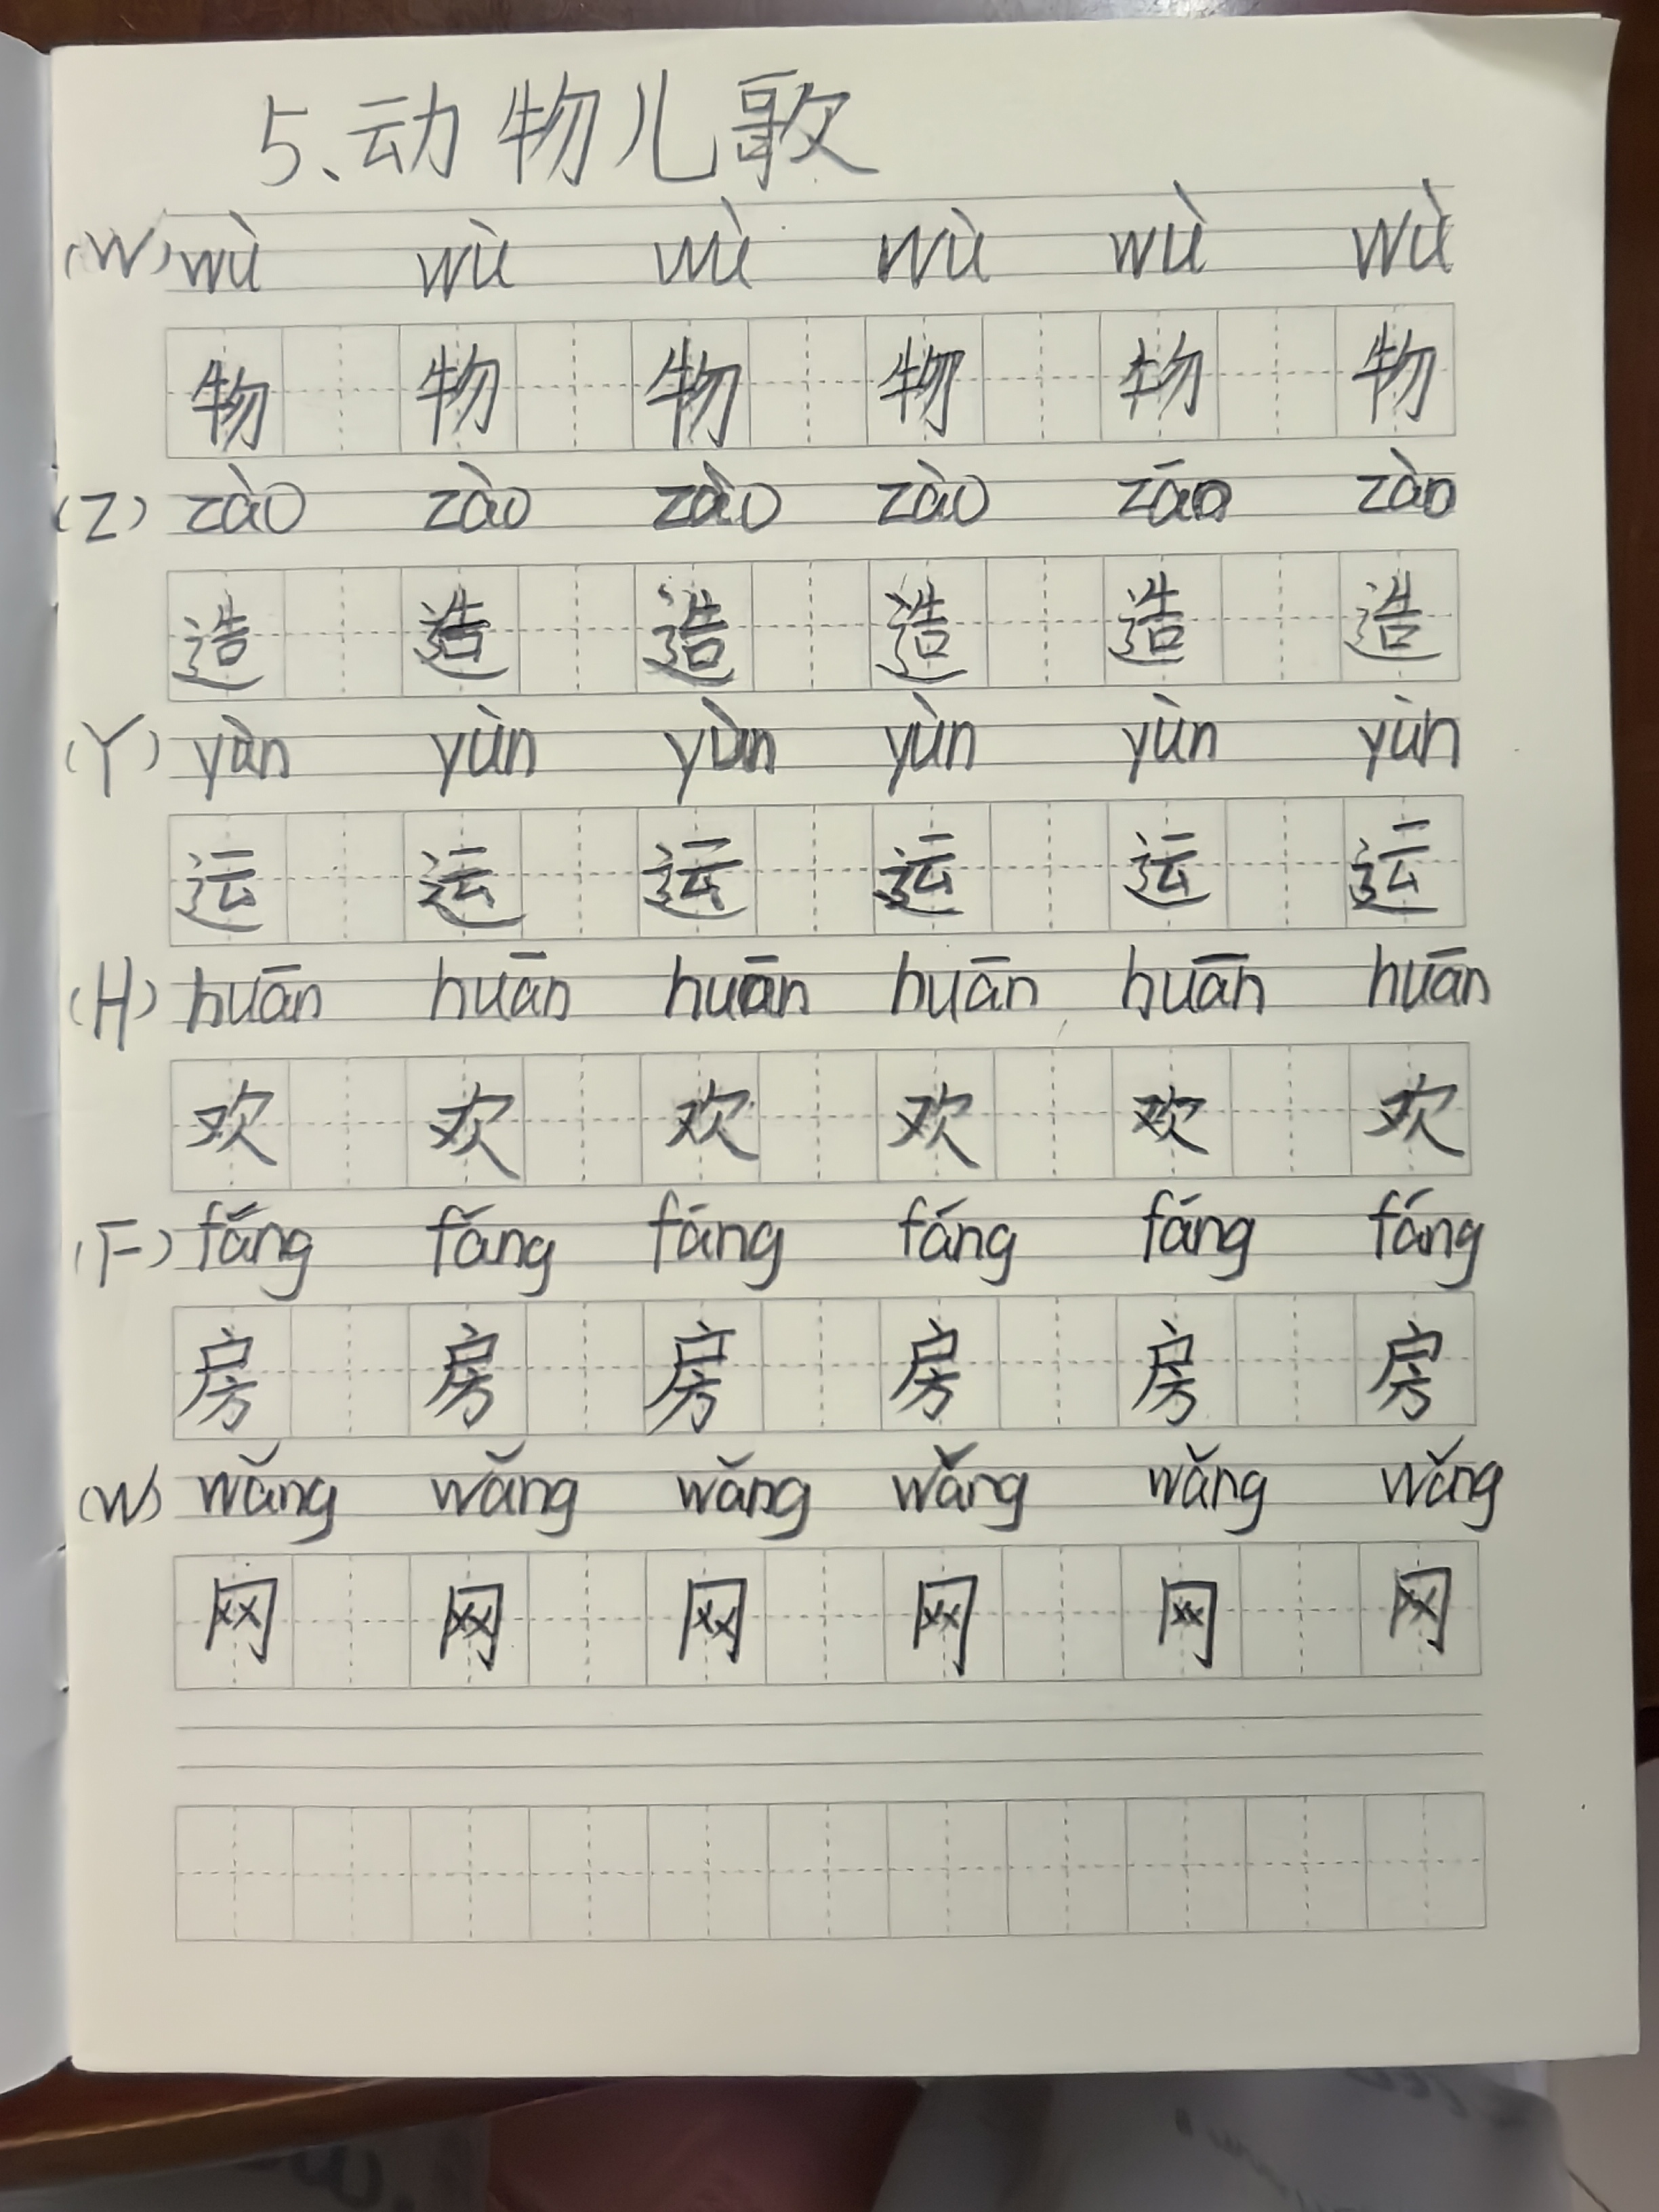 5、动物儿歌
(W) wù wù wù wù wù wù
物 物 物 物 物 物
(Z) zào zào zào zào zāo zào
造 造 造 造 造 造
(Y) yùn yùn yùn yùn yùn yùn
运 运 运 运 运 运
(H) huān huān huān huān huān huān
欢 欢 欢 欢 欢 欢
(F) fáng fáng fáng fáng fáng fáng
房 房 房 房 房 房
(W) wǎng wǎng wǎng wǎng wǎng wǎng
网 网 网 网 网 网